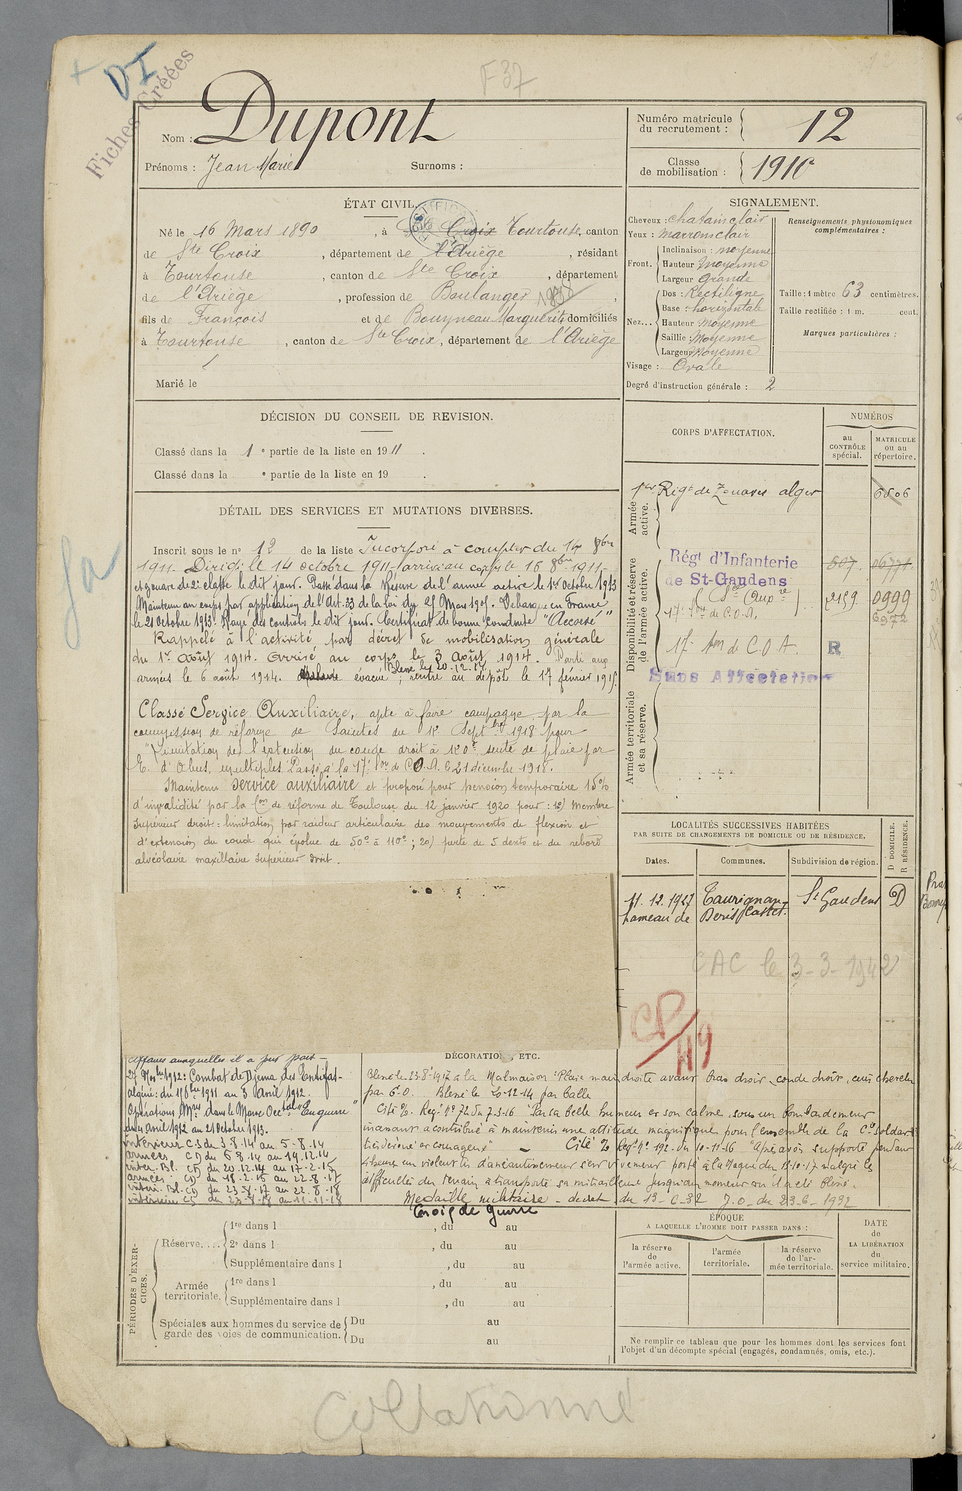 F37
DI
Fiches Créées
Nom : Dupont
Prénoms : Jean Marie
Surnoms :
Numéro matricule
du recrutement : 12
Classe
de mobilisation : 1910
ÉTAT CIVIL.
Né le 16 Mars 1890, à Ste Croix Tourtouse, canton
de Ste Croix, département de l'Ariège, résidant
à Tourtouse, canton de Ste Croix, département
de l'Ariège, profession de Boulanger
fils de François et de Bouyneau Marguerite domiciliés
à Tourtouse, canton de Ste Croix, département de l'Ariège
Marié le
SIGNALEMENT.
Cheveux : chatain clair
Yeux : marron clair
Front. Inclinaison : moyenne
Hauteur moyenne
Largeur Grande
Nez... Dos : Rectiligne
Base : horizontale
Hauteur : Moyenne
Saillie : Moyenne
Largeur Moyenne
Visage : Ovale
Degré d'instruction générale : 2
Renseignements physionomiques
complémentaires :
Taille : 1 mètre 63 centimètres.
Taille rectifiée : 1 m. cent.
Marques particulières :
DÉCISION DU CONSEIL DE REVISION.
Classé dans la 1e partie de la liste en 1911.
Classé dans la e partie de la liste en 19 .
DÉTAIL DES SERVICES ET MUTATIONS DIVERSES.
Inscrit sous le n° 12 de la liste Incorporé à compter du 14 8bre
1911. Dirigé le 14 octobre 1911, arrivé au corps le 16 8bre 1911
et zouave de 2e classe le dit jour. Passé dans la Réserve de l'armée active le 1er Octobre 1913
Maintenu au corps par application de l'Art. 33 de la loi du 21 Mars 1905. Débarqué en France
le 21 Octobre 1913. Rayé des contrôles le dit jour. Certificat de bonne conduite "Accordé"
Rappelé à l'activité par décret de mobilisation générale
du 1er août 1914. Arrivé au corps le 3 août 1914. Parti aux
armées le 6 août 1914. Blessé le 20.12.14 évacué, rentré au dépôt le 17 février 1915
Classé Service Auxiliaire, apte à faire campagne par la
commission de réforme de Saintes du Septbre 1918 pour
"Limitation de l'extension du coude droit à 120° suite de plaie par
E. d'Obus, multiples. Passé à la 17e Son de C.O.A. le 21 décembre 1918.
Maintenu service auxiliaire et proposé pour pension temporaire 15%
d'invalidité par la Con de réforme de Toulouse du 12 janvier 1920 pour : 1°) Membre
supérieur droit : limitation par raideur articulaire des mouvements de flexion et
d'extension du coude qui évolue de 50° à 110° ; 2°) perte de 5 dents et du rebord
alvéolaire maxillaire supérieur droit.
CORPS D'AFFECTATION.
NUMÉROS
au
CONTRÔLE
spécial.
MATRICULE
ou au
répertoire.
Armée
active.
1er Régt de Zouaves alger 6806
Disponibilité et réserve
de l'armée active.
Régt d'Infanterie
de St-Gaudens
2159 0999
17e Son de C.O.A.
17e Son de C O A. R
Sans Affectation
Armée territoriale
et sa réserve.
LOCALITÉS SUCCESSIVES HABITÉES
PAR SUITE DE CHANGEMENTS DE DOMICILE OU DE RÉSIDENCE.
Dates.
Communes.
Subdivision de région.
D DOMICILE.
R RÉSIDENCE.
11.12.1927 Taurignan- St Gaudens D
hameau de Castet.
CAC le 3-3-1942
affaires auxquelles il a pris part -
27 Novbre 1912 : Combat de Djema
algérie : du 16 8bre 1911 au 3 avril 1912.
Opérations Mres dans le Maroc Occtal "En guerre"
du 4 avril 1912 au 21 Octobre 1913.
intérieur C.S du 3.8.14 au 5-8-14
armées CD du 6.8.14 au 19.12.14
intér. Bl. CD du 20.12.14 au 17-2-15
armées. CD du 18.2.15 au 22-8-17
intéri. Bl. CD du 23.8.17 au 22-8-18
intérieur CS du 23-8-18 au 11-11-18
DÉCORATIONS, ETC.
Blessé le 23-8-1917 à la Malmaison Plaie main droite avant bras droit, coude droit, cuir chevelu
par E.O. Blessé le 20-12-14 par balle
Cité O. Régt n° 72 du 7.3.16 Par sa belle humeur et son calme, sous un bombardement
incessant a contribué à maintenir une attitude magnifique pour l'ensemble de la Cie Soldat
très dévoué et courageux" - Cité O. Régt n° 192 du 10-11-16 "Après avoir supporté pendant
Médaille militaire - décret du J.O. du 1932
Croix de Guerre
PÉRIODES D'EXERCICES.
Réserve....
1re dans l , du au
2e dans l , du au
Supplémentaire dans l , du au
Armée
territoriale.
1re dans l , du au
Supplémentaire dans l , du au
Spéciales aux hommes du service de
garde des voies de communication.
Du au
Du au
ÉPOQUE
A LAQUELLE L'HOMME DOIT PASSER DANS :
la réserve
de
l'armée active.
l'armée
territoriale.
la réserve
de l'ar-
mée territoriale.
DATE
de
LA LIBÉRATION
du
service militaire.
Ne remplir ce tableau que pour les hommes dont les services font
l'objet d'un décompte spécial (engagés, condamnés, omis, etc.).
Collationné